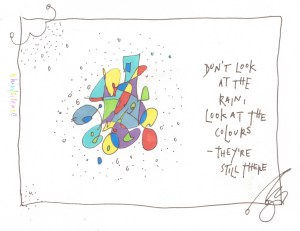 DON'T LOOK
AT THE
RAIN;
LOOK AT THE
COLOURS
- THEY'RE
STILL THERE